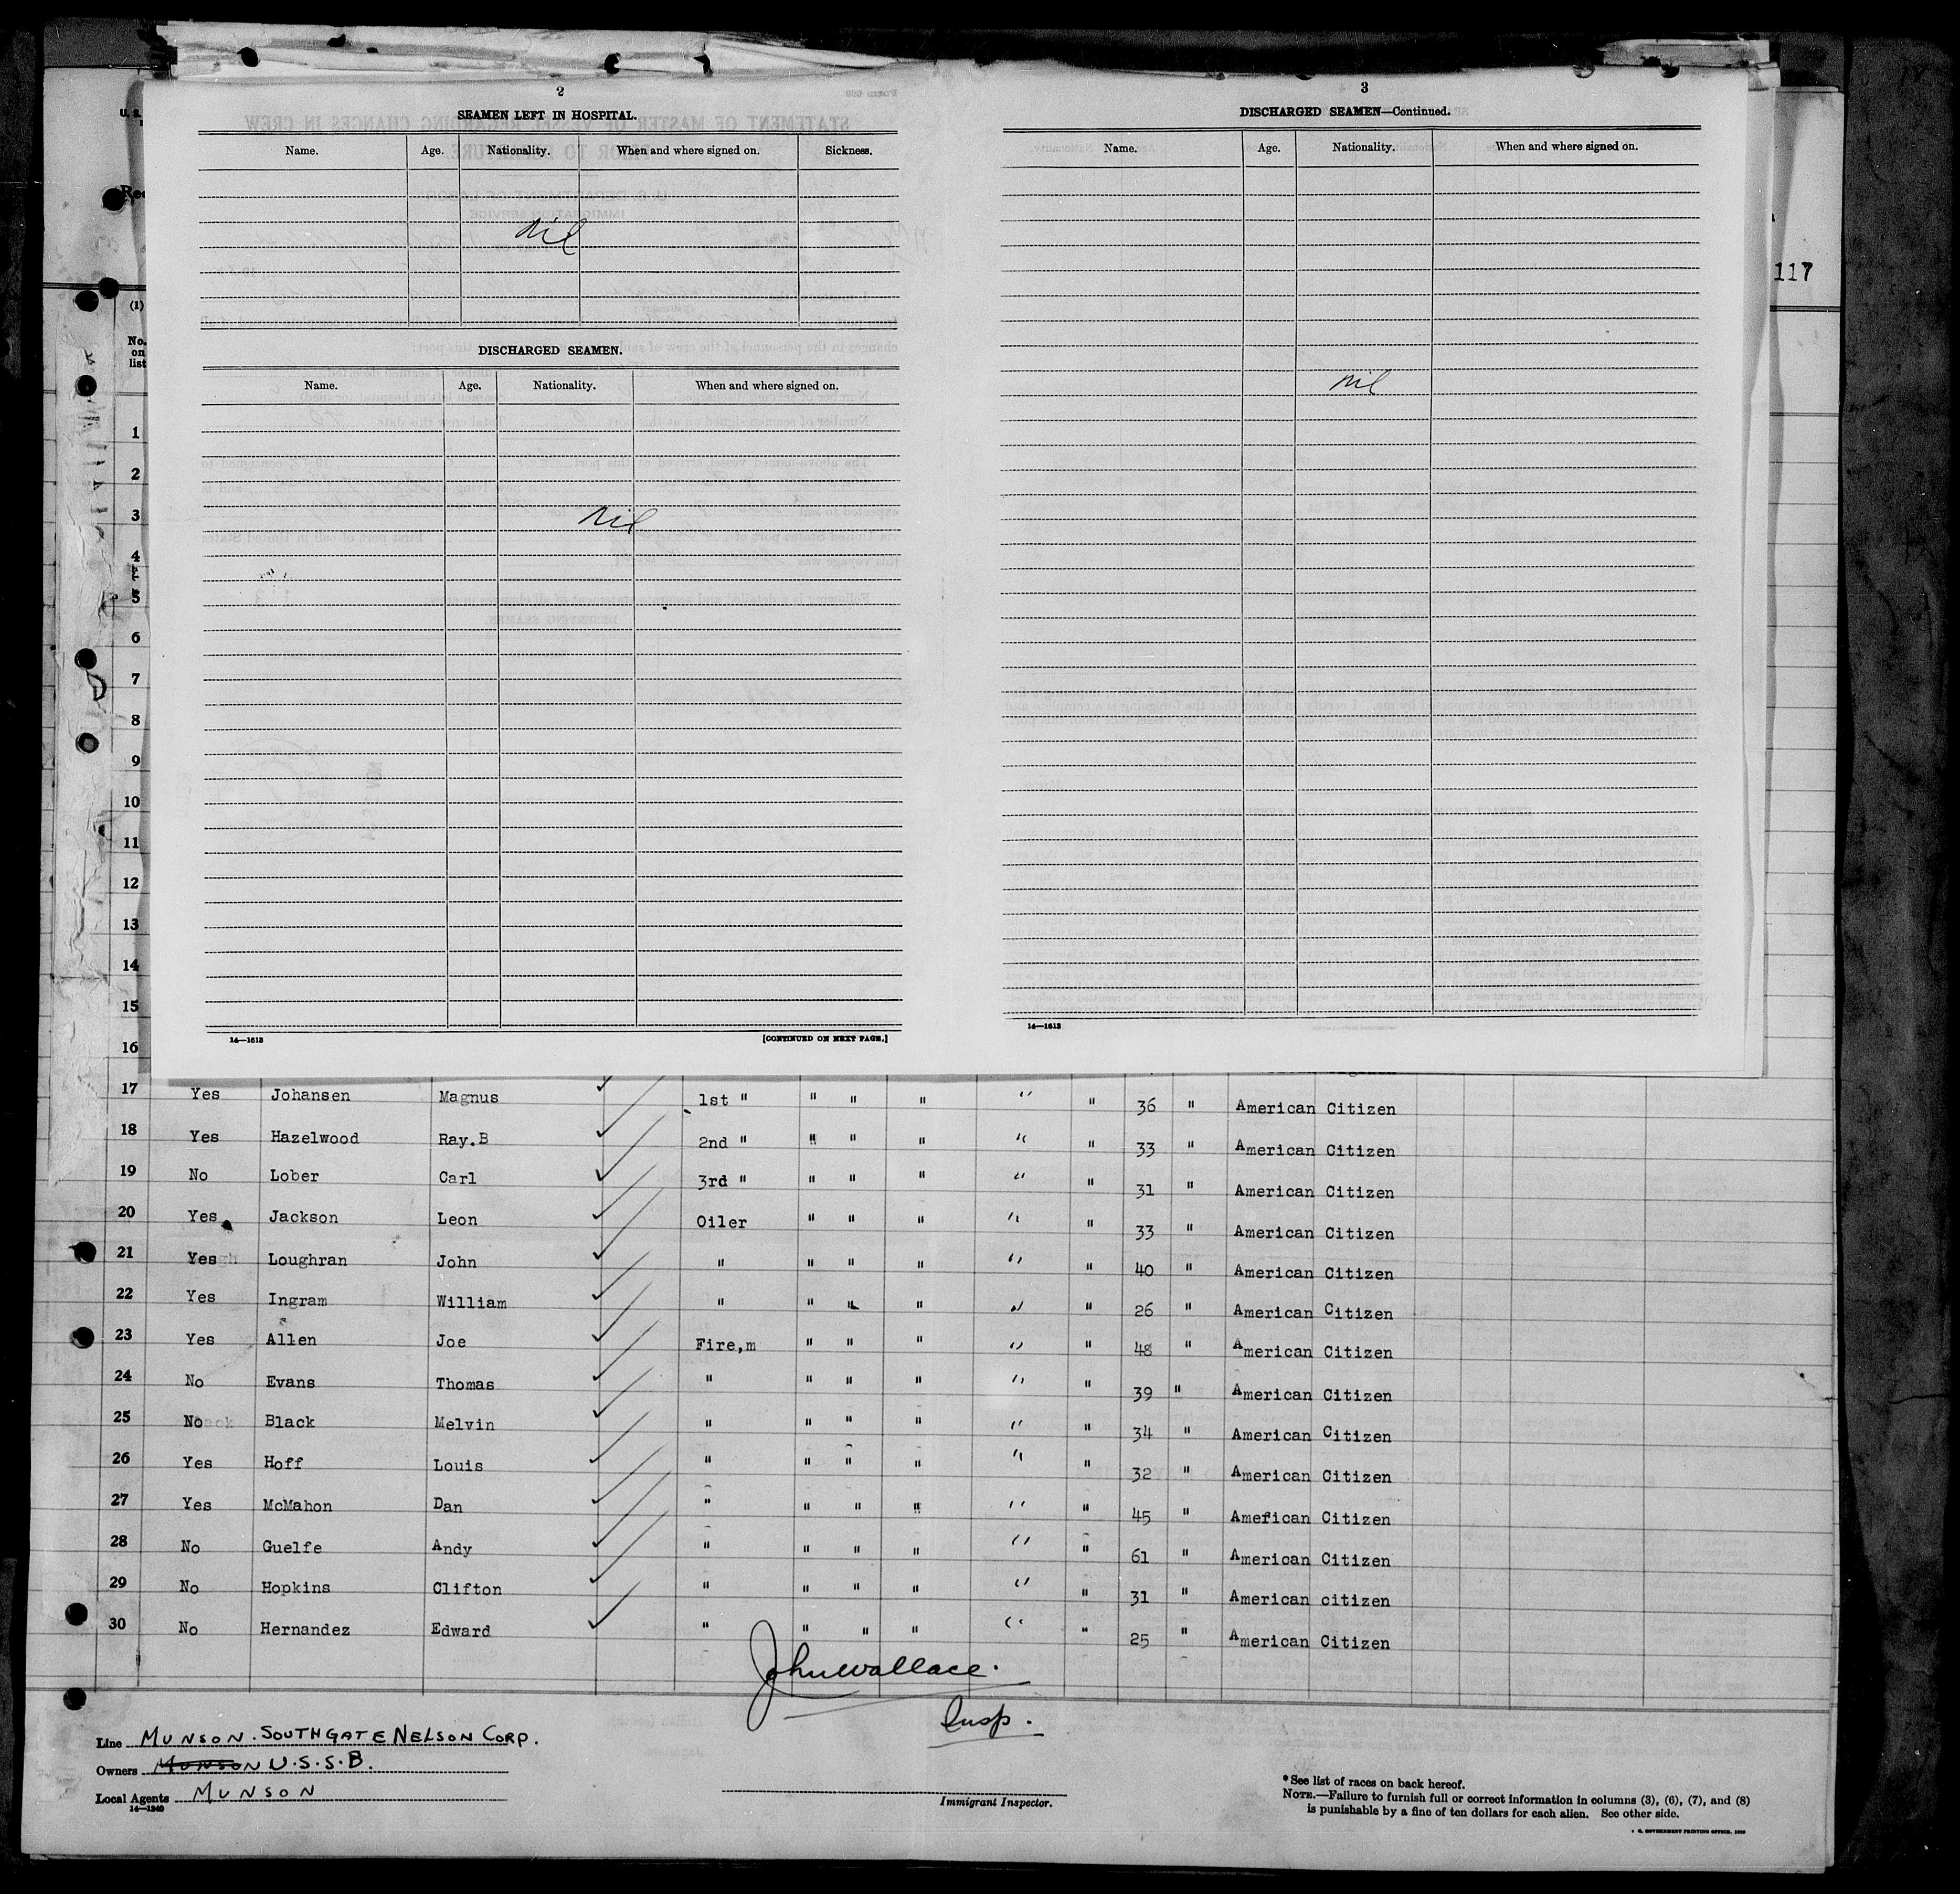 2
SEAMEN LEFT IN HOSPITAL.
Name. Age. Nationality. When and where signed on. Sickness.
nil
DISCHARGED SEAMEN.
Name. Age. Nationality. When and where signed on.
nil
14—1613 [CONTINUED ON NEXT PAGE.]
3
DISCHARGED SEAMEN—Continued.
Name. Age. Nationality. When and where signed on.
nil
14—1613
117
(1)
No.
on
list
1
2
3
4
5
6
7
8
9
10
11
12
13
14
15
16
17 Yes Johansen Magnus 1st " " " " " " 36 " American Citizen
18 Yes Hazelwood Ray.B 2nd " " " " " " 33 " American Citizen
19 No Lober Carl 3rd " " " " " " 31 " American Citizen
20 Yes Jackson Leon Oiler " " " " " 33 " American Citizen
21 Yes Loughran John " " " " " " 40 " American Citizen
22 Yes Ingram William " " " " " " 26 " American Citizen
23 Yes Allen Joe Fire,m " " " " " 48 " American Citizen
24 No Evans Thomas " " " " " " 39 " American Citizen
25 No Black Melvin " " " " " " 34 " American Citizen
26 Yes Hoff Louis " " " " " " 32 " American Citizen
27 Yes McMahon Dan " " " " " " 45 " American Citizen
28 No Guelfe Andy " " " " " " 61 " American Citizen
29 No Hopkins Clifton " " " " " " 31 " American citizen
30 No Hernandez Edward " " " " " " 25 " American Citizen
John Wallace.
Insp.
Line MUNSON. SOUTHGATE NELSON CORP.
Owners MUNSON U.S.S.B.
Local Agents MUNSON
14—1240
Immigrant Inspector.
*See list of races on back hereof.
NOTE.—Failure to furnish full or correct information in columns (3), (6), (7), and (8)
is punishable by a fine of ten dollars for each alien. See other side.
GOVERNMENT PRINTING OFFICE